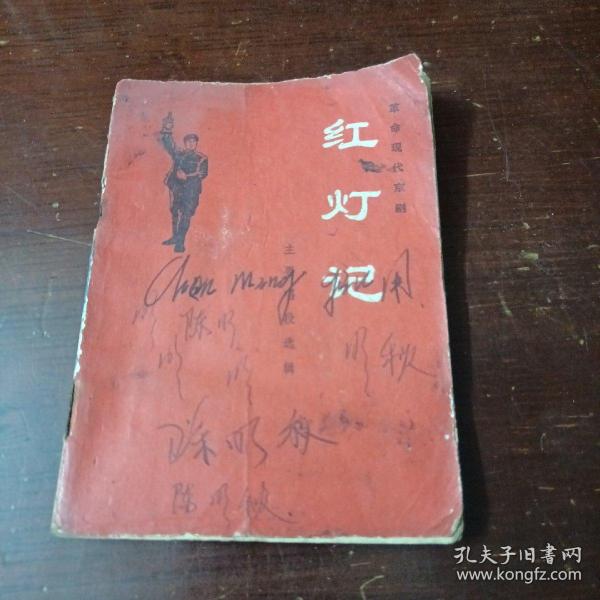 革命现代京剧
红灯记
主要唱段选辑
Chen Ming 用
陈明
明 秋
明
陈明秋
陈明秋
孔夫子旧书网
www.kongfz.com